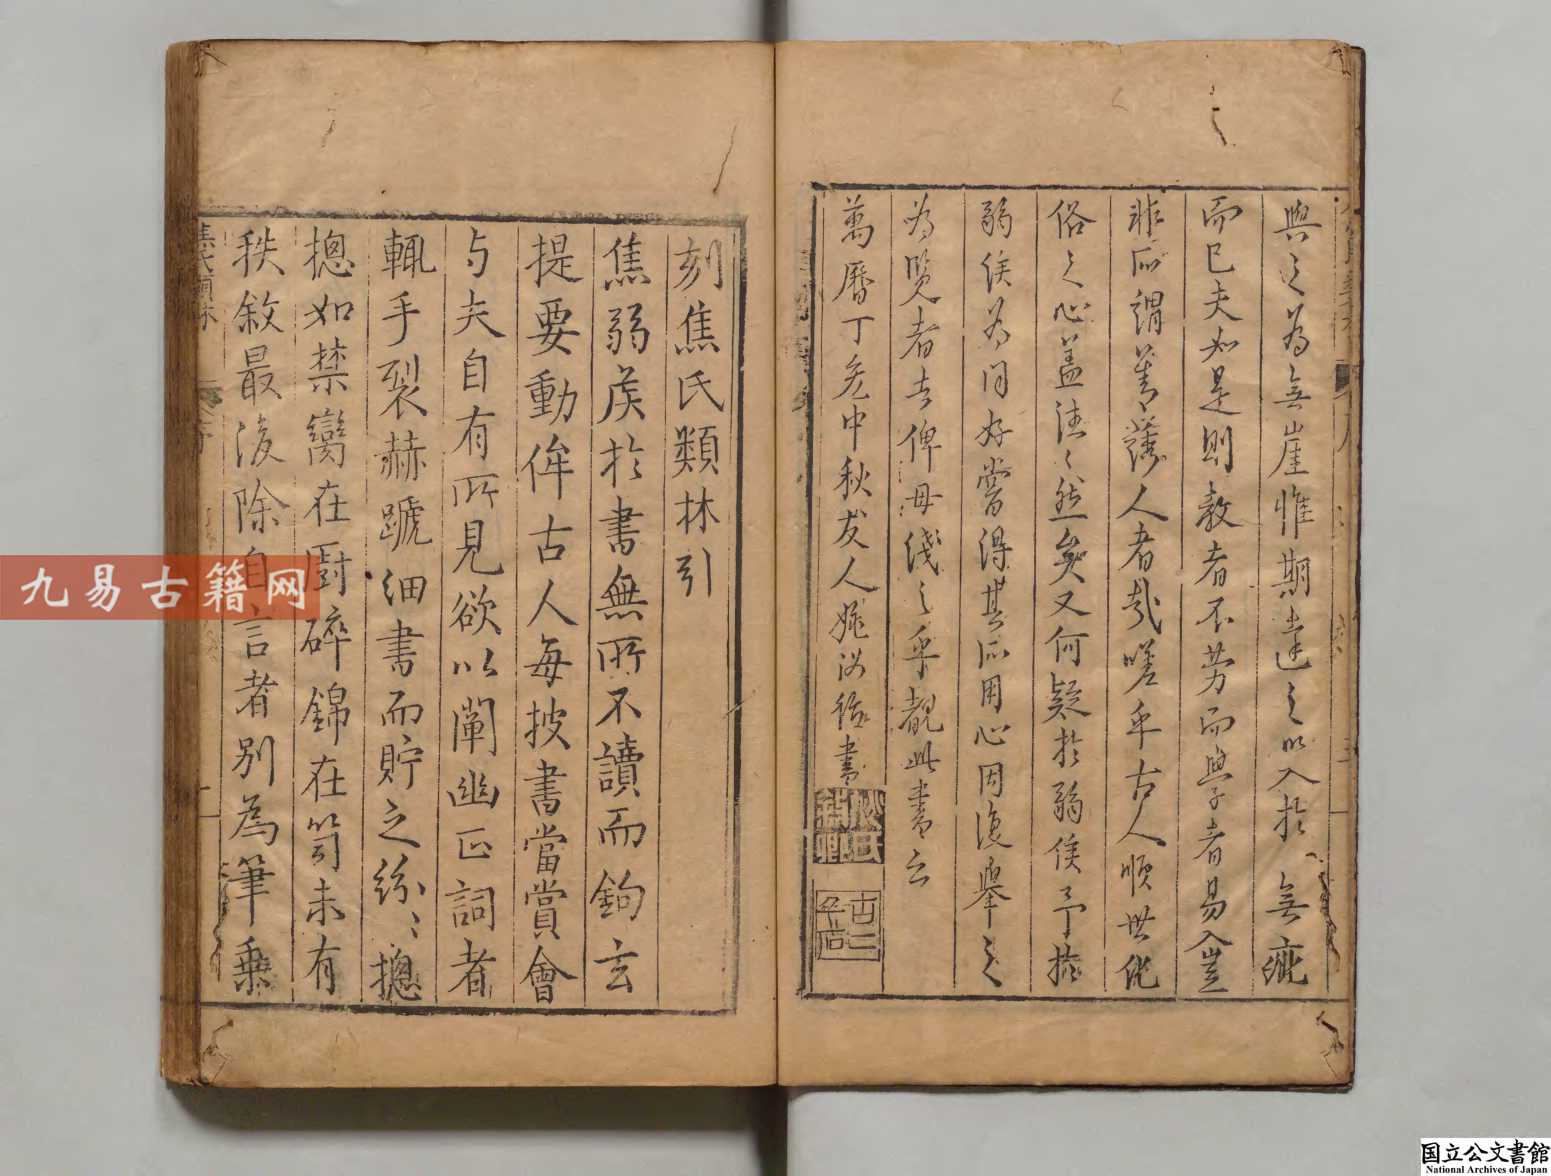 與之為無崖惟期達之以入於無疵
而已夫如是則教者不勞而學者易入豈
非所謂善誘人者哉嗟乎古人順世化
俗之心蓋往〻然矣又何疑於弱侯予於
弱侯為同好嘗得其所用心因復舉之
為覽者告俾毋淺之乎觀此書云
萬曆丁亥中秋友人姚汝循書
刻焦氏類林引
焦弱侯於書無所不讀而鉤玄
提要動侔古人每披書當賞會
与夫自有所見欲以闡幽正詞者
輒手裂赫蹏細書而貯之紛〻摠
摠如禁臠在廚碎錦在笥未有
秩敘最後除自言者別為筆乗
焦氏類林
九易古籍网
国立公文書館
National Archives of Japan